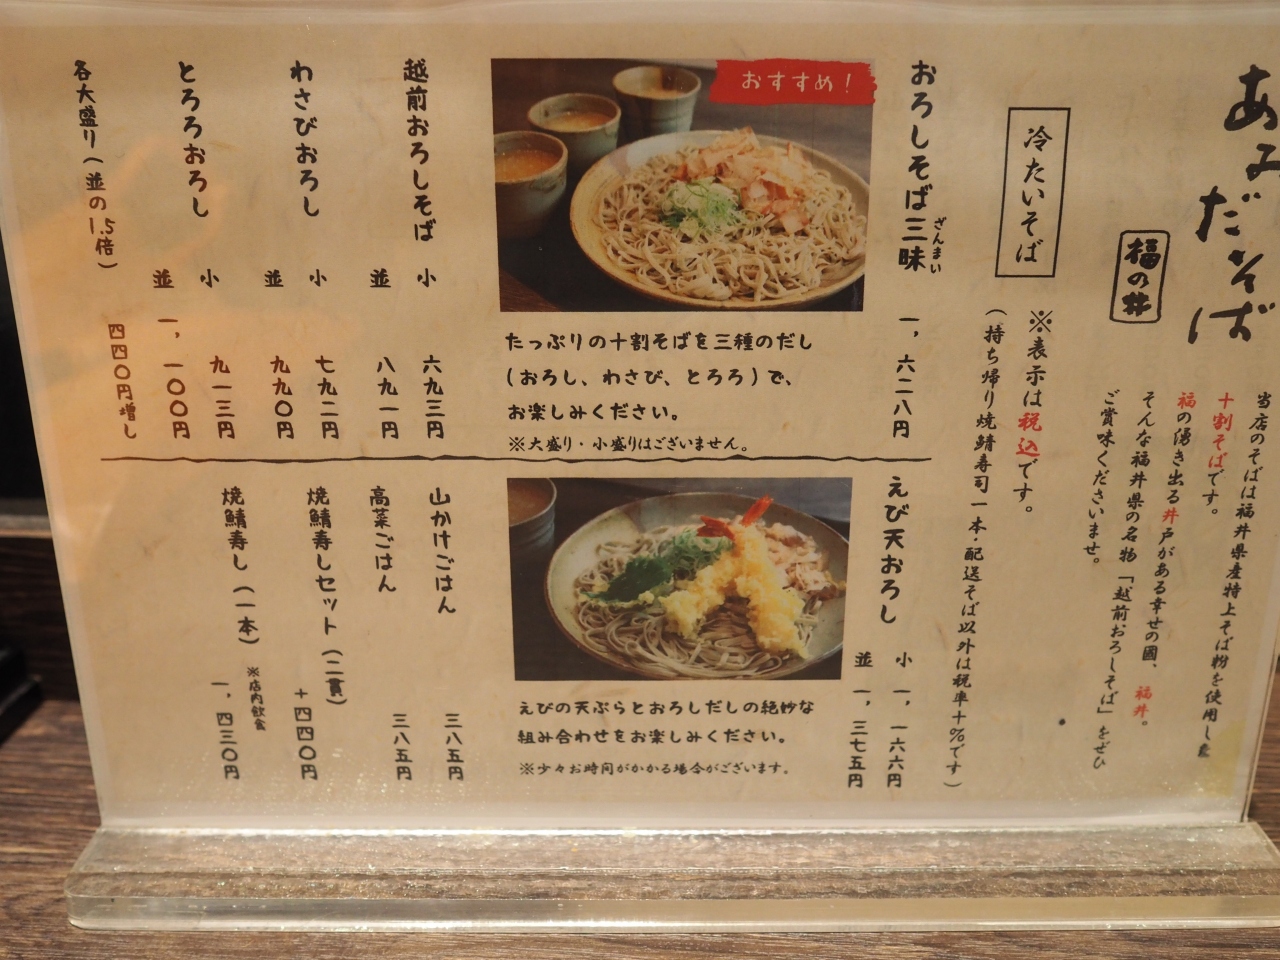 あみだそば
福の井
当店のそばは福井県産特上そば粉を使用した
十割そばです。
福の湧き出る井戸がある幸せの國、福井。
そんな福井県の名物「越前おろしそば」をぜひ
ご賞味くださいませ。
※表示は税込です。
(持ち帰り焼鯖寿司一本・配送そば以外は税率十%です)
冷たいそば
おろしそば三昧 一、六二八円
ざんまい
おすすめ!
たっぷりの十割そばを三種のだし
(おろし、わさび、とろろ)で、
お楽しみください。
※大盛り・小盛りはございません。
越前おろしそば
小 六九三円
並 八九一円
わさびおろし
小 七九二円
並 九九〇円
とろろおろし
小 九一三円
並 一、一〇〇円
各大盛り(並の1.5倍) 四四〇円増し
えび天おろし
小 一、一六六円
並 一、三七五円
えびの天ぷらとおろしだしの絶妙な
組み合わせをお楽しみください。
※少々お時間がかかる場合がございます。
山かけごはん 三八五円
高菜ごはん 三八五円
焼鯖寿しセット(二貫) +四四〇円
焼鯖寿し(一本) ※店内飲食 一、四三〇円